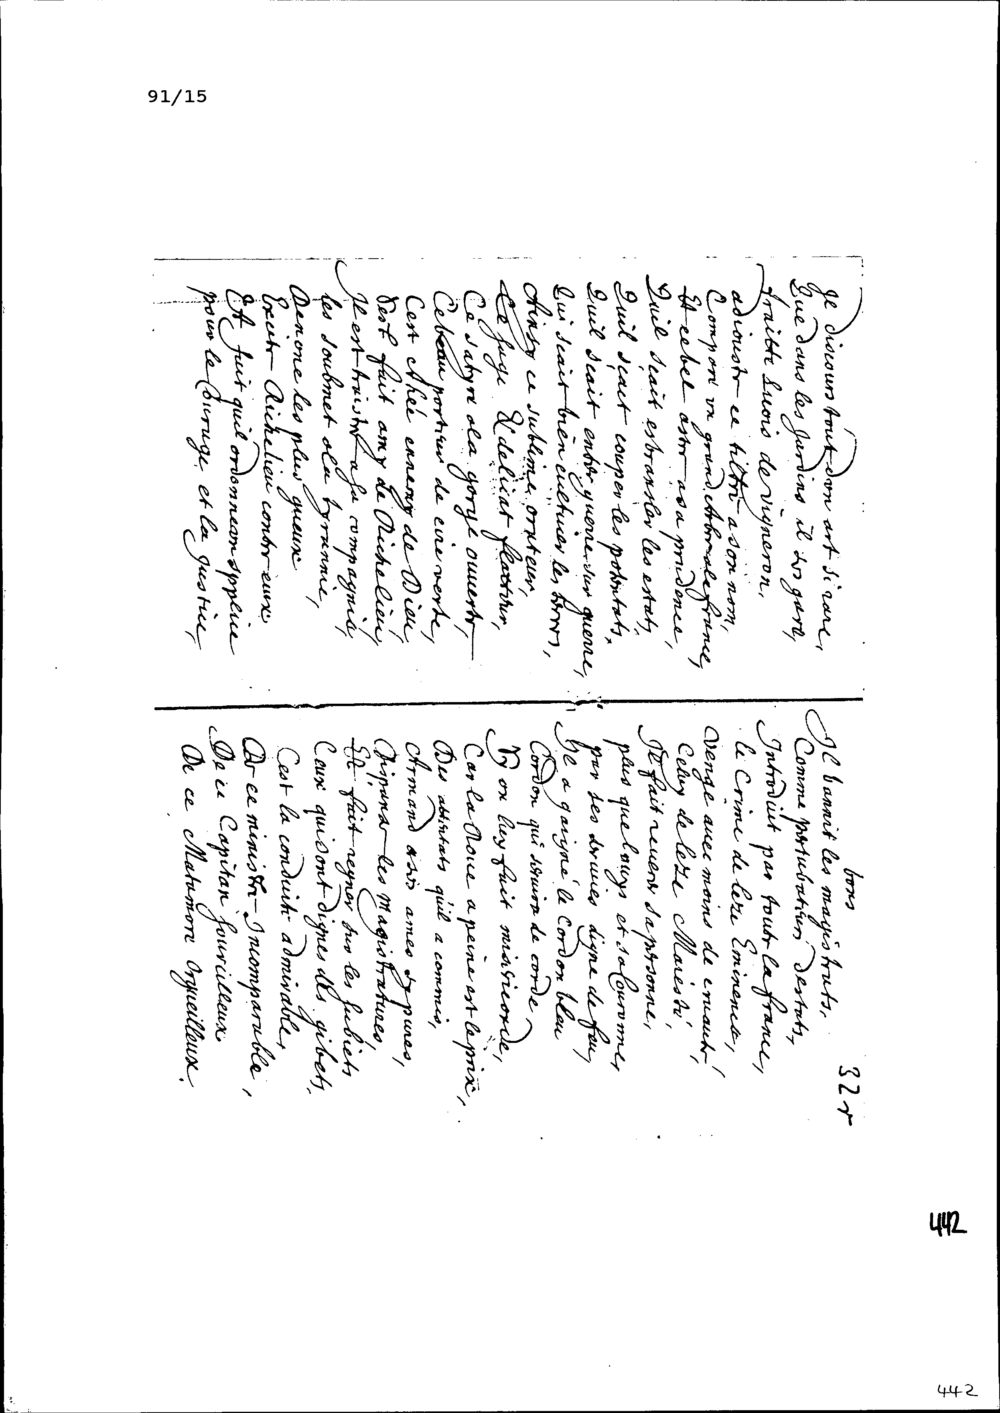 91/15
Je discours tout d'on art si rare,
Que dans les Jardins il dos gare,
Traitte Suois de vigneron,
adiouste ce tiltre a son nom,
Compose un grand Admirale france,
Et cebel astre a sa prudence,
Quil scait esbranler les estats,
Quil scait couper les potentats,
Quil scait enter guerre sur guerre,
Qui scait bien cultiuer les terres,
Ainsy ce sublime orateur,
Ce Juge & delicat flatteur,
Ce satyre a la gorge ouverte,
Ce beau porteur de cire verte,
Cest Athée ennemy de Dieu,
Sest fait amy de Richelieu,
Il est traistre a sa compagnie,
les soubmet a la tyrannie,
Denonce les plus genereux
Excite Richelieu contre eux,
Et fait quil ordonne en supplice
pour le Courage et la Justice,
bons
32 r
Il bannit les magistrats,
Comme pertubateurs destats,
Introduit par toute la france,
le Crime de leze Eminence,
venge auec moins de cruauté,
Celuy de leze Maiesté,
Il fait reuerer sa personne,
plus que louys et sa Couronne,
par ses driues digne de feu,
Il a gaigné le Cordon bleu
Cordon qui seruira de corde,
Sy on luy fait misericorde,
Car la Roue a peine est le prix,
Des attentats quil a commis,
Armand a ses ames sy pures,
Dispense les magistratures,
Et fait regner sur les subiets
Ceux qui sont dignes des gibets,
Cest la conduite admirable,
De ce ministre Incomparable,
De ce Capitan sourcilleux
De ce Matamore orgueilleux.
442
442